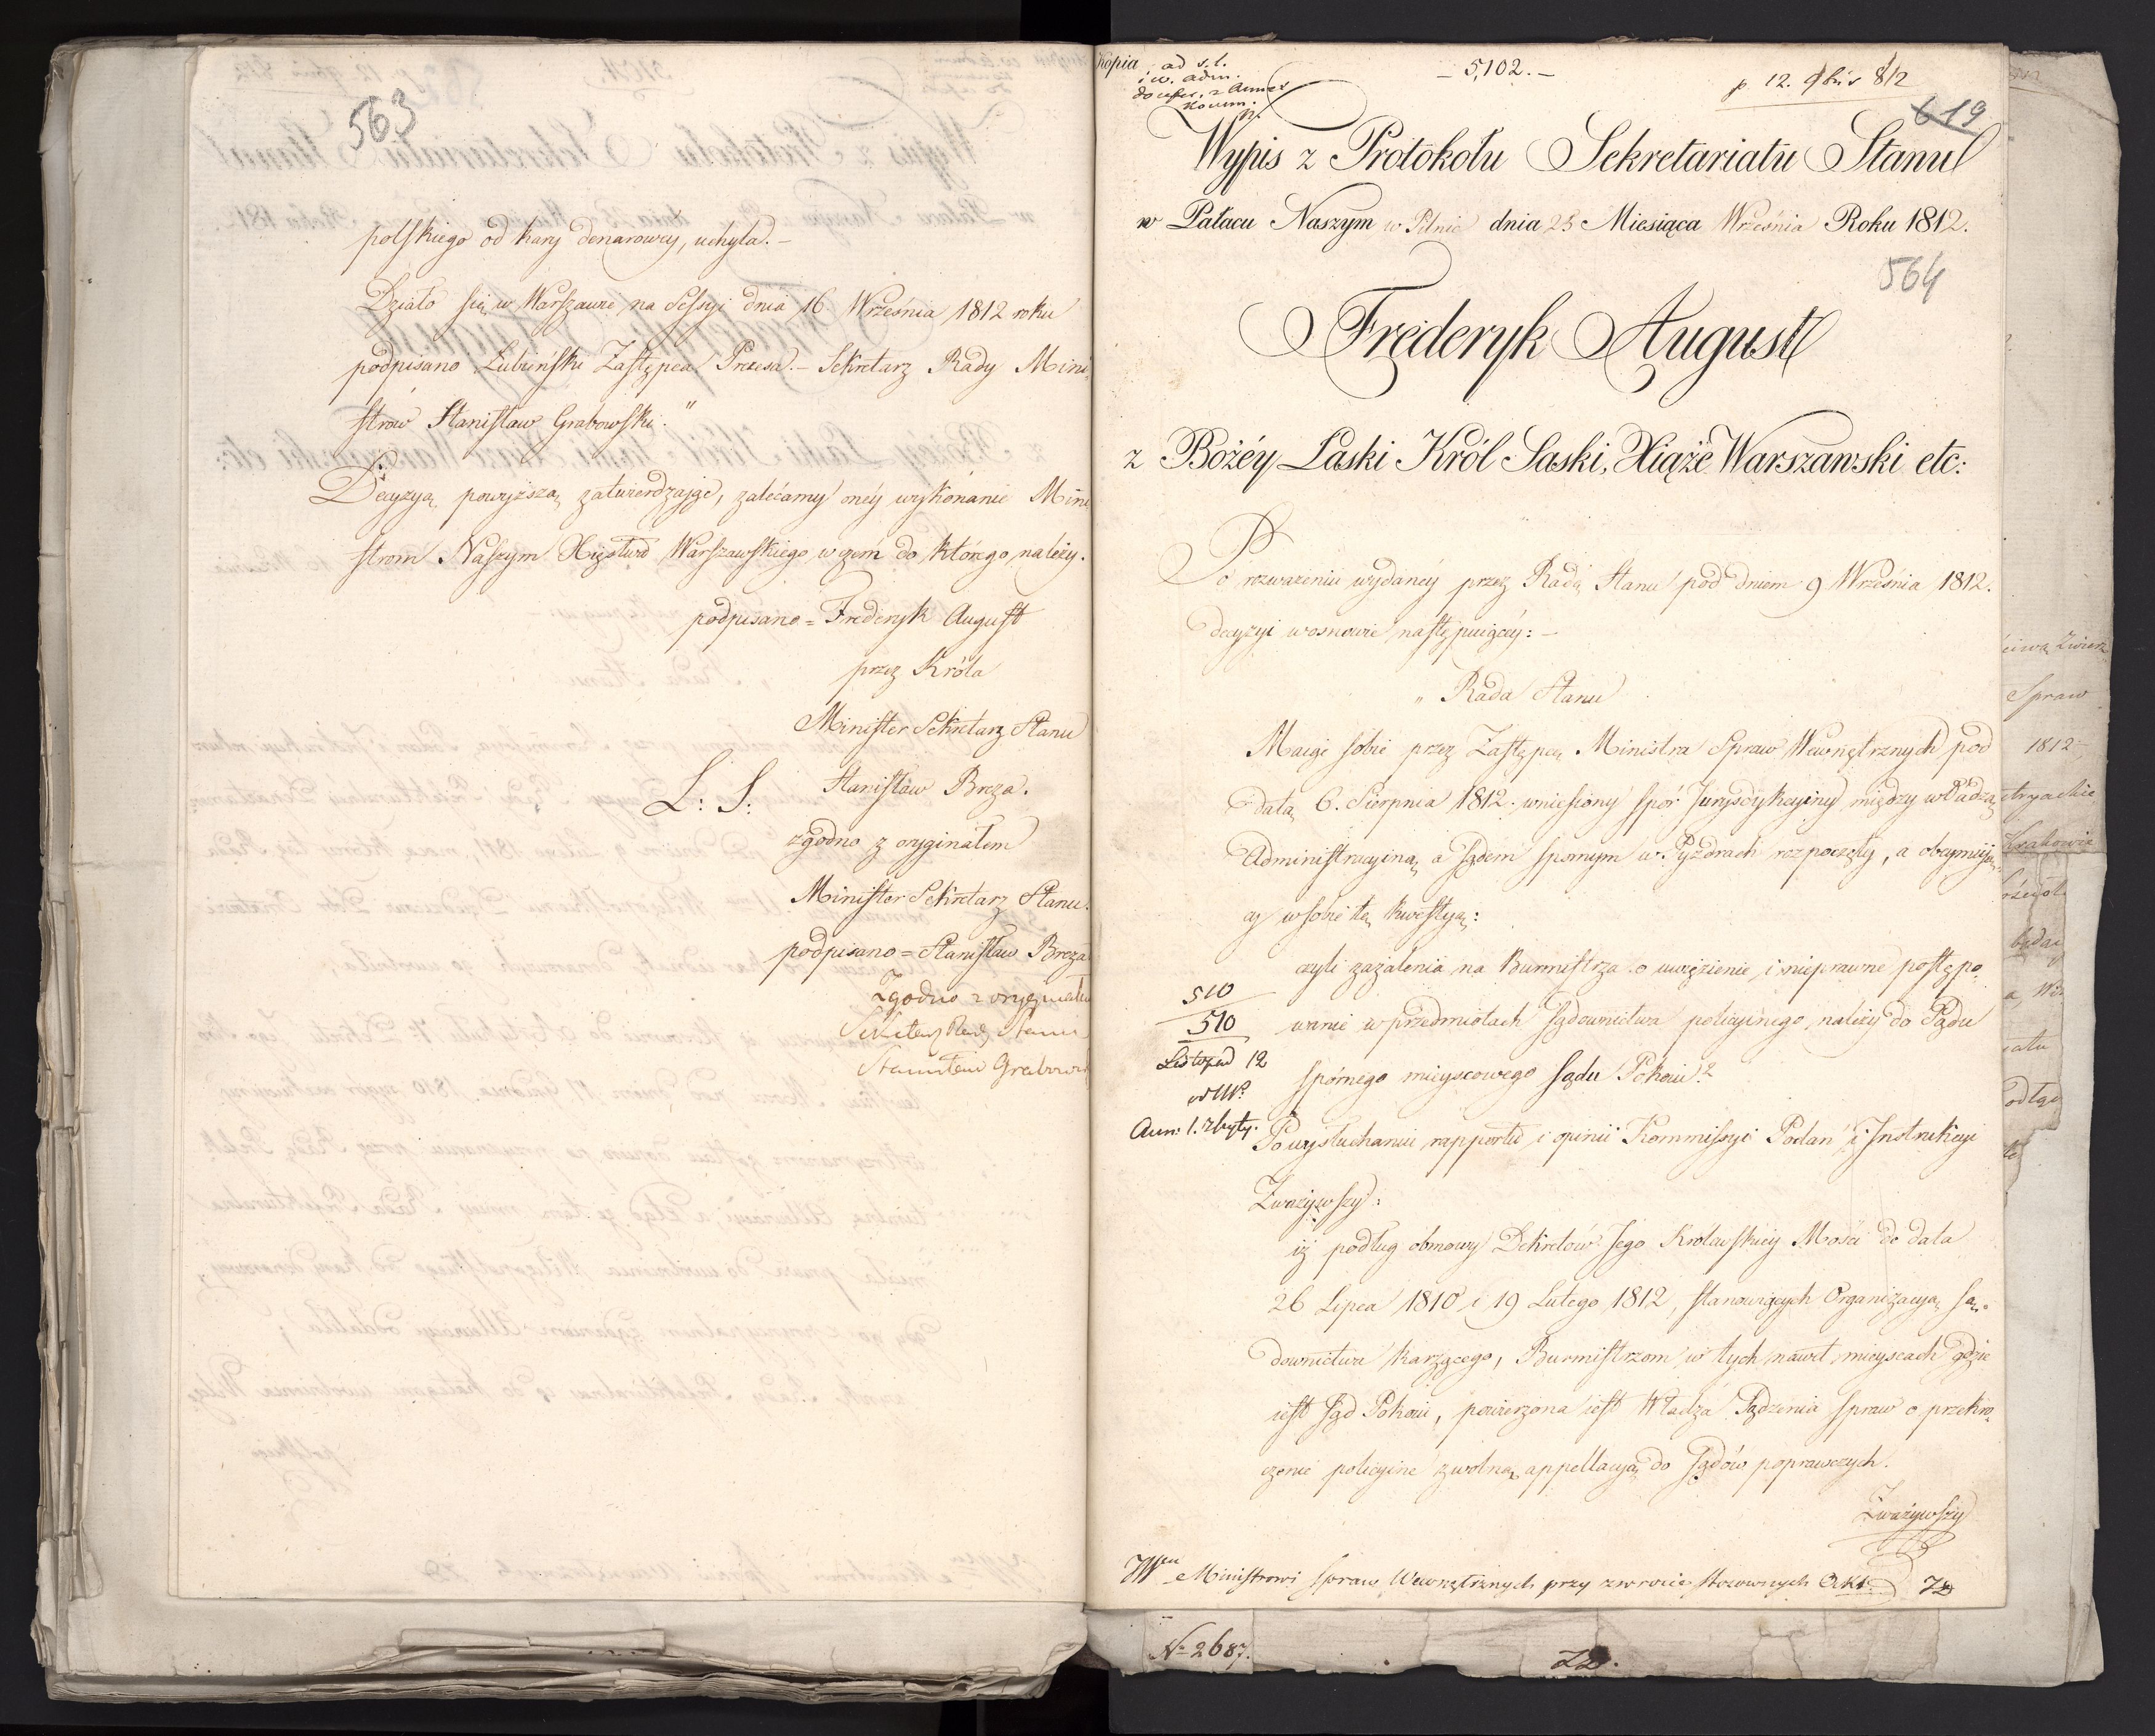 563
polskiego od kary denarowey, uchyla.–
Działo się w Warszawie na Sessyi dnia 16 Września 1812 roku
podpisano Lubieński Zastępca Prezesa.– Sekretarz Rady Mini-
strow Stanisław Grabowski."
Decyzyą powyższą zatwierdzaiąc, zalécamy onéy wykonanie Mini
strom Naszym Xięstwa Warszawskiego w czém do którego należy.
podpisano = Frederyk August
przez Króla
Minister Sekretarz Stanu
L: S: Stanisław Breza.
zgodno z oryginałem
Minister Sekretarz Stanu.
podpisano = Stanisław Breza
Zgodno z oryginałem
Sekretarz Rady Stanu
Stanisław Grabowski
Kopia ad s. l.
i w. adm.
– 5,102. –
p. 12. 9bris 812
619
Wypis z Protokołu Sekretariatu Stanu
w Pałacu Naszym w Pilnic dnia 25 Miesiąca Września Roku 1812.
564
Frederyk August
z Bożéy Łaski Król Saski, Xiąże Warszawski etc:
Po rozważeniu wydanéy przez Radę Stanu pod dniem 9 Września 1812.
decyzyi w osnowie następuiącéy: –
„ Rada Stanu
Maiąc sobie przez Zastępcę Ministra Spraw Wewnętrznych pod
datą 6. Sierpnia 1812. wniesiony spór Jurysdykcyiny między władzą
Administracyiną a Sądem spornym w Pyzdrach rozpoczęty, a obeymuią-
cy w sobie tę kwestyą:
czyli zażalenia na Burmistrza o uwięzienie i nieprawne postępo-
wanie w przedmiotach sądownictwa policyinego, należy do Sądu
spórnego mieyscowego Sądu Pokoiu?
510
510
Listopad 12
Po wysłuchaniu rapportu i opinii Kommissyi Podań i Instrukcyi
Zważywszy:
iż podług osnowy Dekretów Jego Królewskiéy Mości de data
26 Lipca 1810 i 19 Lutego 1812, stanowiących Organizacyą są-
downictwa karzącego, Burmistrzom w tych nawet mieyscach gdzie
iest Sąd Pokoiu, powierzona iest Władza Sądzenia spraw o przekro-
czenie policyine z wolną appellacyą do Sądów poprawczych.
Zważywszy
JW Ministrowi Spraw Wewnętrznych przy zwrocie stosownych Akt.
No 2687.